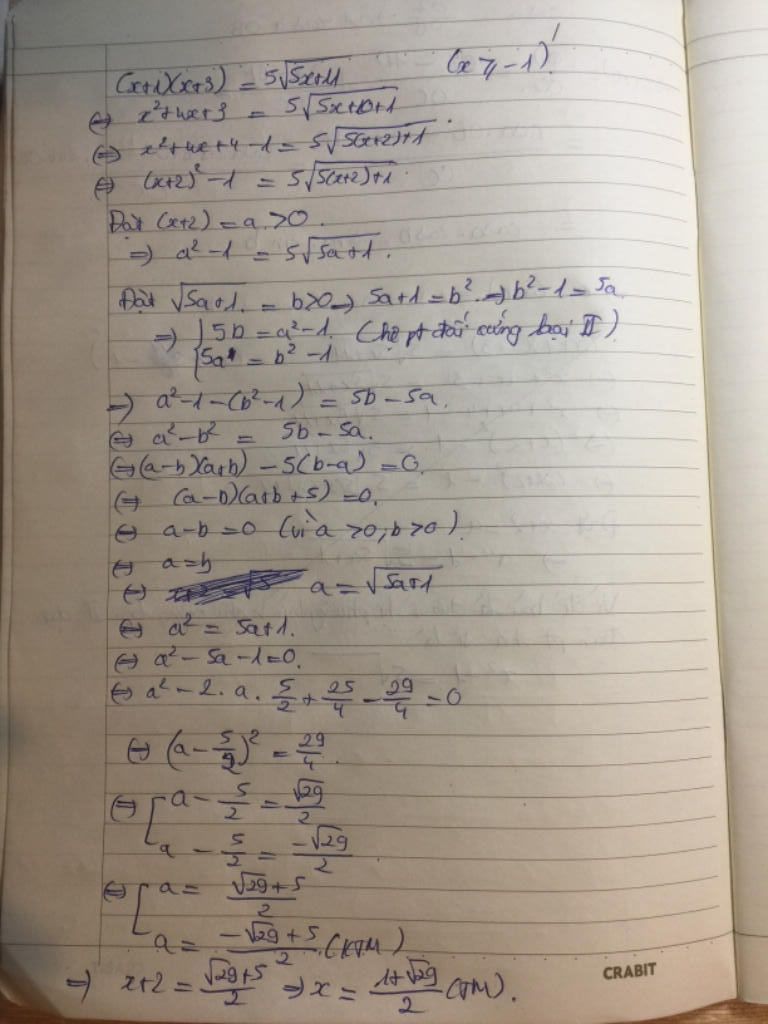 (x+1)(x+3) = 5√(5x+11) (x ≥ -1)
⇔ x²+4x+3 = 5√(5x+10+1)
⇔ x²+4x+4-1 = 5√(5(x+2)+1).
⇔ (x+2)² - 1 = 5√(5(x+2)+1).
Đặt (x+2) = a > 0.
⇒ a² - 1 = 5√(5a+1).
Đặt √(5a+1) = b > 0 → 5a+1 = b² → b²-1 = 5a
⇒ { 5b = a² - 1. (hệ pt đối xứng loại II)
5a = b² - 1
⇒ a² - 1 - (b²-1) = 5b - 5a.
⇔ a² - b² = 5b - 5a.
⇔ (a-b)(a+b) - 5(b-a) = 0.
⇔ (a-b)(a+b+5) = 0.
⇔ a-b = 0 (vì a > 0, b > 0).
⇔ a = b
⇔ a = √(5a+1)
⇔ a² = 5a+1.
⇔ a² - 5a - 1 = 0.
⇔ a² - 2. a. 5/2 + 25/4 - 29/4 = 0
⇔ (a - 5/2)² = 29/4.
⇔ [ a - 5/2 = √29/2
a - 5/2 = -√29/2
⇔ [ a = (√29+5)/2
a = (-√29+5)/2 (KTM)
⇒ x+2 = (√29+5)/2 ⇒ x = (1+√29)/2 (TM).
CRABIT